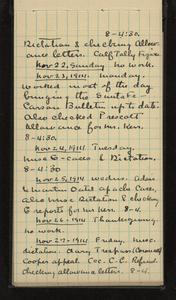 8-4:30.
Dictation & checking Allow-
ance letters. Calf Tally Figrs.
Nov 22, Sunday no work.
Nov 23, 1914. Monday.
Worked most of the day
bringing the Santa Fe
Carson Bulletin up to date.
Also checked Prescott
Allowance for Mr. Kerr.
8-4:30.
Nov 24, 1914. Tuesday.
Misc G-cases & Dictation.
8-4:30
Nov 25, 1914 Wednes. Adam
& Martin Oatil Apache Case,
also Misc Dictation & checking
G reports for Mr. Kerr. 8-4.
Nov 26-1914 Thanksgiving.
no work.
Nov 27-1914 Friday, Misc.
dictation. Chary Trespass (Coronado)
Cooper appeal Coc. C.C. Refund.
Checking allowance letters. 8-4.